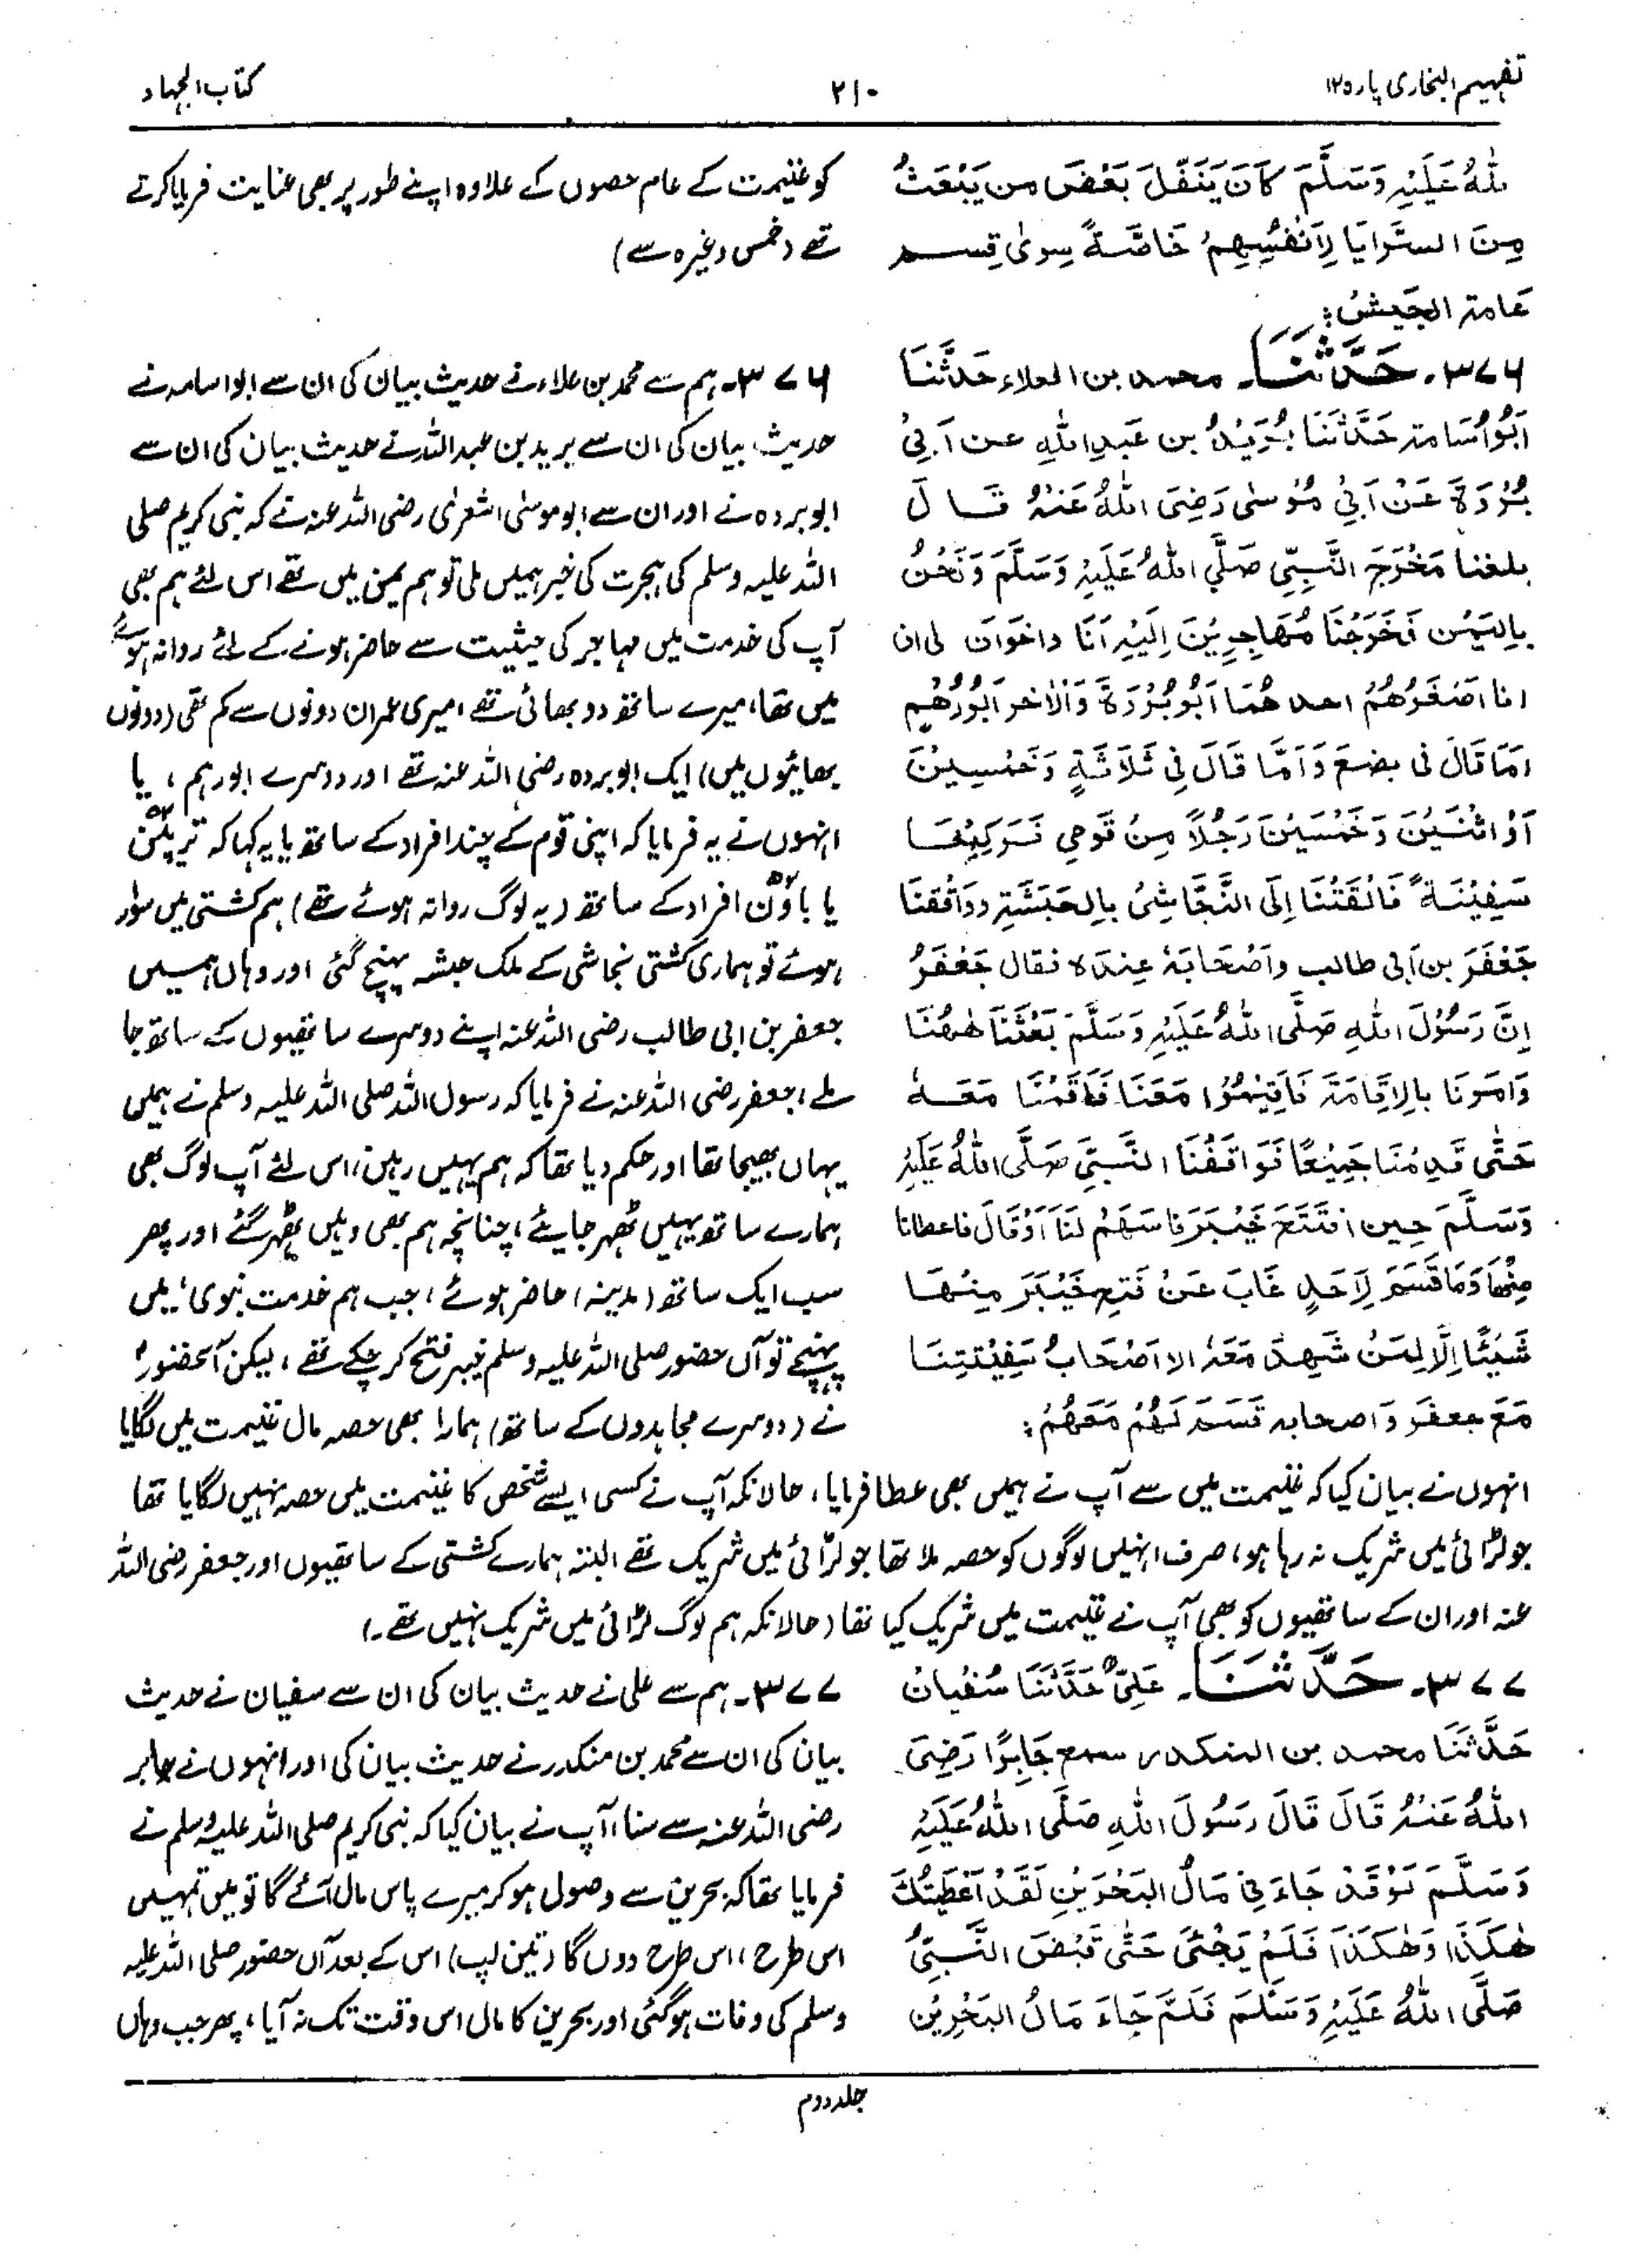 تفہیم البخاری پارہ ۱۲
۲۱۰
کتاب الجہاد
للهُ عَلَيْهِ وَسَلَّمَ كَانَ يَنَفِّلُ بَعْضَ من يَبْعَثُ
مِنَ السَّرَايَا لِاَنْفُسِهِمْ خَاصَّةً سِوىٰ قِسم
عَامة الجَيْشِ:
۳۷۶۔ حَدَّثَنَا۔ محمد بن العلاء حَدَّثَنَا
اَبُوْاُسَامة حَدَّثَنَا بُرَيْدُ بن عَبدِ اللهِ عن اَبِیْ
بُرْدَةَ عَنْ اَبِیْ مُوْسیٰ رَضِیَ اللهُ عَنْهُ قَالَ
بلغنا مَخْرَجَ النَّبِیِّ صَلَّی اللهُ عَلَيْهِ وَسَلَّمَ وَنَحْنُ
بِاليَمَنِ فَخَرَجْنَا مُهَاجِرِيْنَ اِلَيْهِ اَنَا واخَوَان لی ان
انا اَصْغَرُهُمْ احد هُمَا اَبُوْبُرْدَةَ وَالْاٰخر اَبُوْرُهْمٍ
اِمَا قَالَ فی بضعَ وَاِمَّا قَالَ فِی ثَلَاثَةٍ وَخَمْسِينَ
اَوْ اثْنَيْنَ وَخَمْسِيْنَ رَجُلاً مِنْ قَوْمِی فَرَكِبْنَا
سَفِيْنَةً فَالْقَتْنَا اِلَی النَّجَاشِیْ بِالحَبَشَةِ ووَافْقنَا
جَعْفَرَ بن اَبی طالب واَصْحَابَهٗ عِندَه فقال جَعْفَرُ
اِنَّ رَسُوْلَ اللهِ صَلَّی اللهُ عَلَيْهِ وَسَلَّمَ بَعَثَنَا هٰهُنَا
وَاَمَرنَا بِالِاقَامَةَ فَاَقِيْمُوْا مَعَنَا فَاَقَمْنَا مَعَهٗ
حَتّٰی قَدِمْنَا جَمِيْعًا فَوَافَقْنَا النَّبِیَّ صَلَّی اللهُ عَلَيْهِ
وَسَلَّمَ حِين افتَتَحَ خَيْبَرَ فَاسَهَمْ لنَا اَوْقَالَ فاعطانا
مِنْهَا وَمَا قَسَمَ لِاَحَدٍ غَابَ عَنْ فَتح خَيْبَرَ مِنْهَا
شَيْئًا اِلَّا لِمَنْ شَهِدَ مَعَهٗ الا اَصْحَابُ سَفِيْنَتِنَا
مَعَ جعفَر وَاصحابه قَسَمَ لَهُمْ مَعَهُمْ:
کو غنیمت کے عام حصوں کے علاوہ اپنے طور پر بھی عنایت فرمایا کرتے
تھے (خمس وغیرہ سے)
۳۷۶۔ ہم سے محمد بن علاء نے حدیث بیان کی ان سے ابو اسامہ نے
حدیث بیان کی ان سے برید بن عبد اللہ نے حدیث بیان کی ان سے
ابو بردہ نے اور ان سے ابو موسیٰ اشعری رضی اللہ عنہ نے کہ نبی کریم صلی
اللہ علیہ وسلم کی ہجرت کی خبر ہمیں ملی تو ہم یمن میں تھے اس لئے ہم بھی
آپ کی خدمت میں مہاجر کی حیثیت سے حاضر ہونے کے لئے روانہ ہوئے
میں تھا، میرے ساتھ دو بھائی تھے، میری عمر ان دونوں سے کم تھی (دونوں
بھائیوں میں) ایک ابو بردہ رضی اللہ عنہ تھے اور دوسرے ابورہم، یا
انہوں نے یہ فرمایا کہ اپنی قوم کے چند افراد کے ساتھ یا یہ کہا کہ ترپن ۵۳
یا باون ۵۲ افراد کے ساتھ (یہ لوگ روانہ ہوئے تھے) ہم کشتی میں سوار
ہوئے تو ہماری کشتی نجاشی کے ملک حبشہ پہنچ گئی اور وہاں ہمیں
جعفر بن ابی طالب رضی اللہ عنہ اپنے دوسرے ساتھیوں کے ساتھ جا
ملے، جعفر رضی اللہ عنہ نے فرمایا کہ رسول اللہ صلی اللہ علیہ وسلم نے ہمیں
یہاں بھیجا تھا اور حکم دیا تھا کہ ہم یہیں رہیں، اس لئے آپ لوگ بھی
ہمارے ساتھ یہیں ٹھہر جایئے، چنانچہ ہم بھی وہیں ٹھہر گئے اور پھر
سب ایک ساتھ (مدینہ) حاضر ہوئے، جب ہم خدمت نبویؐ میں
پہنچے تو آں حضور صلی اللہ علیہ وسلم خیبر فتح کر چکے تھے، لیکن آنحضورؐ
نے (دوسرے مجاہدوں کے ساتھ) ہمارا بھی حصہ مال غنیمت میں لگایا
انہوں نے بیان کیا کہ غنیمت میں سے آپ نے ہمیں بھی عطا فرمایا، حالانکہ آپ نے کسی ایسے شخص کا غنیمت میں حصہ نہیں لگایا تھا
جو لڑائی میں شریک نہ رہا ہو، صرف انہیں لوگوں کو حصہ ملا تھا جو لڑائی میں شریک تھے البتہ ہمارے کشتی کے ساتھیوں اور جعفر رضی اللہ
عنہ اور ان کے ساتھیوں کو بھی آپ نے غنیمت میں شریک کیا تھا (حالانکہ ہم لوگ لڑائی میں شریک نہیں تھے۔)
۳۷۷۔ حَدَّثَنَا۔ عَلِیٌّ حَدَّثَنَا سُفْيَانُ
حَدَّثَنَا محمد بن المنکدر سمع جَابِرًا رَضِیَ
اللهُ عَنْهُ قَالَ قَالَ رَسُوْلَ اللهِ صَلَّی اللهُ عَلَيْهِ
وَسَلَّمَ لَوْقَدْ جَاءَ نِی مَالُ البَحْرَيْنِ لَقَدْ اَعْطَيْتُكَ
هٰكَذَا وَهٰكَذَا فَلَمْ يَجِئْ حَتّٰی قُبِضَ النَّبِیُّ
صَلَّی اللهُ عَلَيْهِ وَسَلَّمَ فَلَمَّ جَاءَ مَالُ البَحْرِيْن
۳۷۷۔ ہم سے علی نے حدیث بیان کی ان سے سفیان نے حدیث
بیان کی ان سے محمد بن منکدر نے حدیث بیان کی اور انہوں نے جابر
رضی اللہ عنہ سے سنا، آپ نے بیان کیا کہ نبی کریم صلی اللہ علیہ وسلم نے
فرمایا تھا کہ بحرین سے وصول ہو کر میرے پاس مال آئے گا تو میں تمہیں
اس طرح، اس طرح دوں گا (تین لپ) اس کے بعد آں حضور صلی اللہ علیہ
وسلم کی وفات ہو گئی اور بحرین کا مال اس وقت تک نہ آیا، پھر جب وہاں
جلد دوم